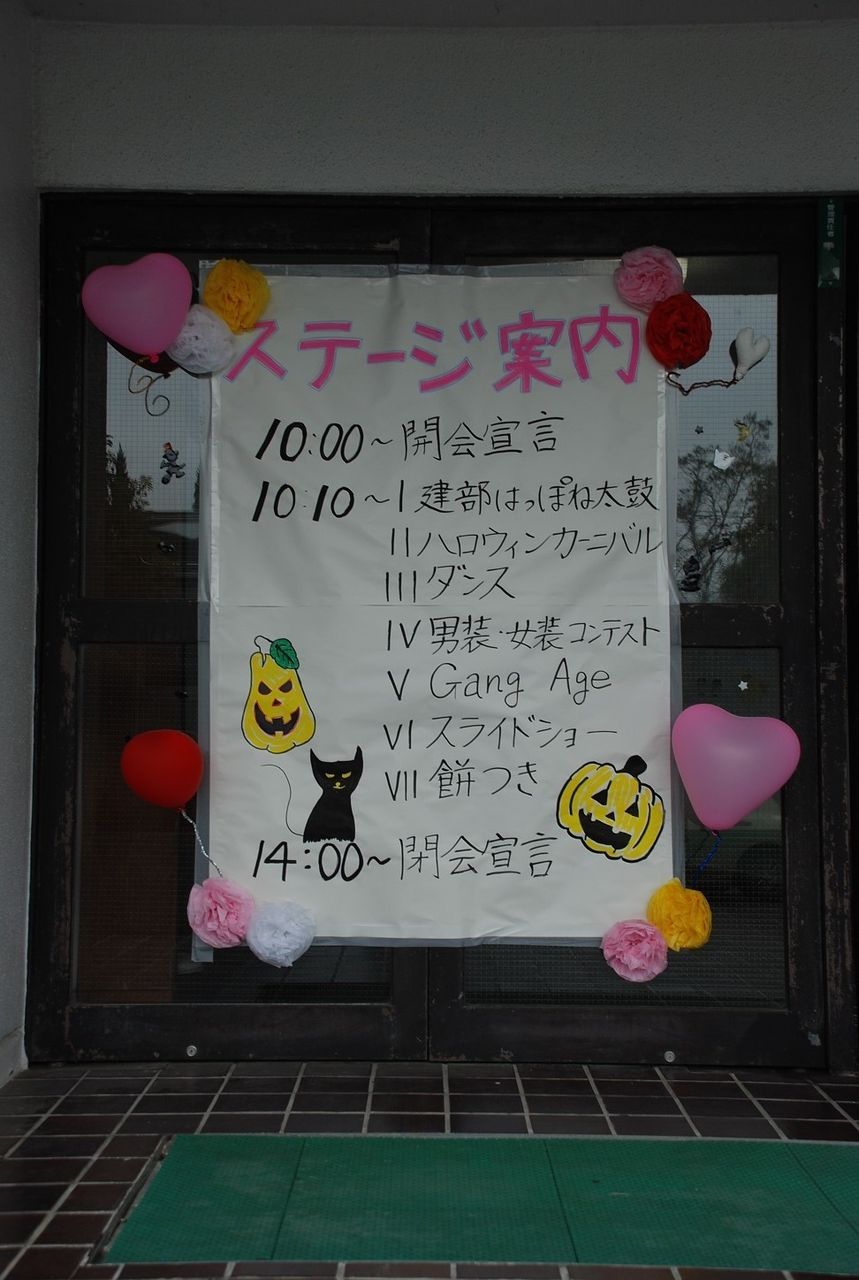 ステージ案内
10:00~開会宣言
10:10~I 建部はっぽね太鼓
II ハロウィンカーニバル
III ダンス
IV 男装・女装コンテスト
V Gang Age
VI スライドショー
VII 餅つき
14:00~閉会宣言